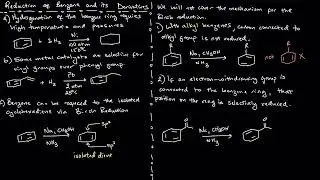 Reduction of Benzene and its Derivatives
a) Hydrogenation of the benzene ring requires
high temperature and pressure.
+ 3 H₂
Ni
150°C
b) Some metal catalysts are selective for
vinyl groups over phenyl group.
+ H₂
Pt
2 atm
25°C
c) Benzene can be reduced to the isolated
cyclohexadiene via Birch Reduction
Na, CH₃OH
NH₃
sp³
sp³
isolated diene
We will not cover the mechanism for the
Birch reduction.
1) With alkyl benzenes carbon connected to
alkyl group is not reduced.
R
Na, CH₃OH
NH₃
R
not
R
X
2) If an electron-withdrawing group is
connected to the benzene ring, that
portion of the ring is selectively reduced.
O
Na, CH₃OH
NH₃
O